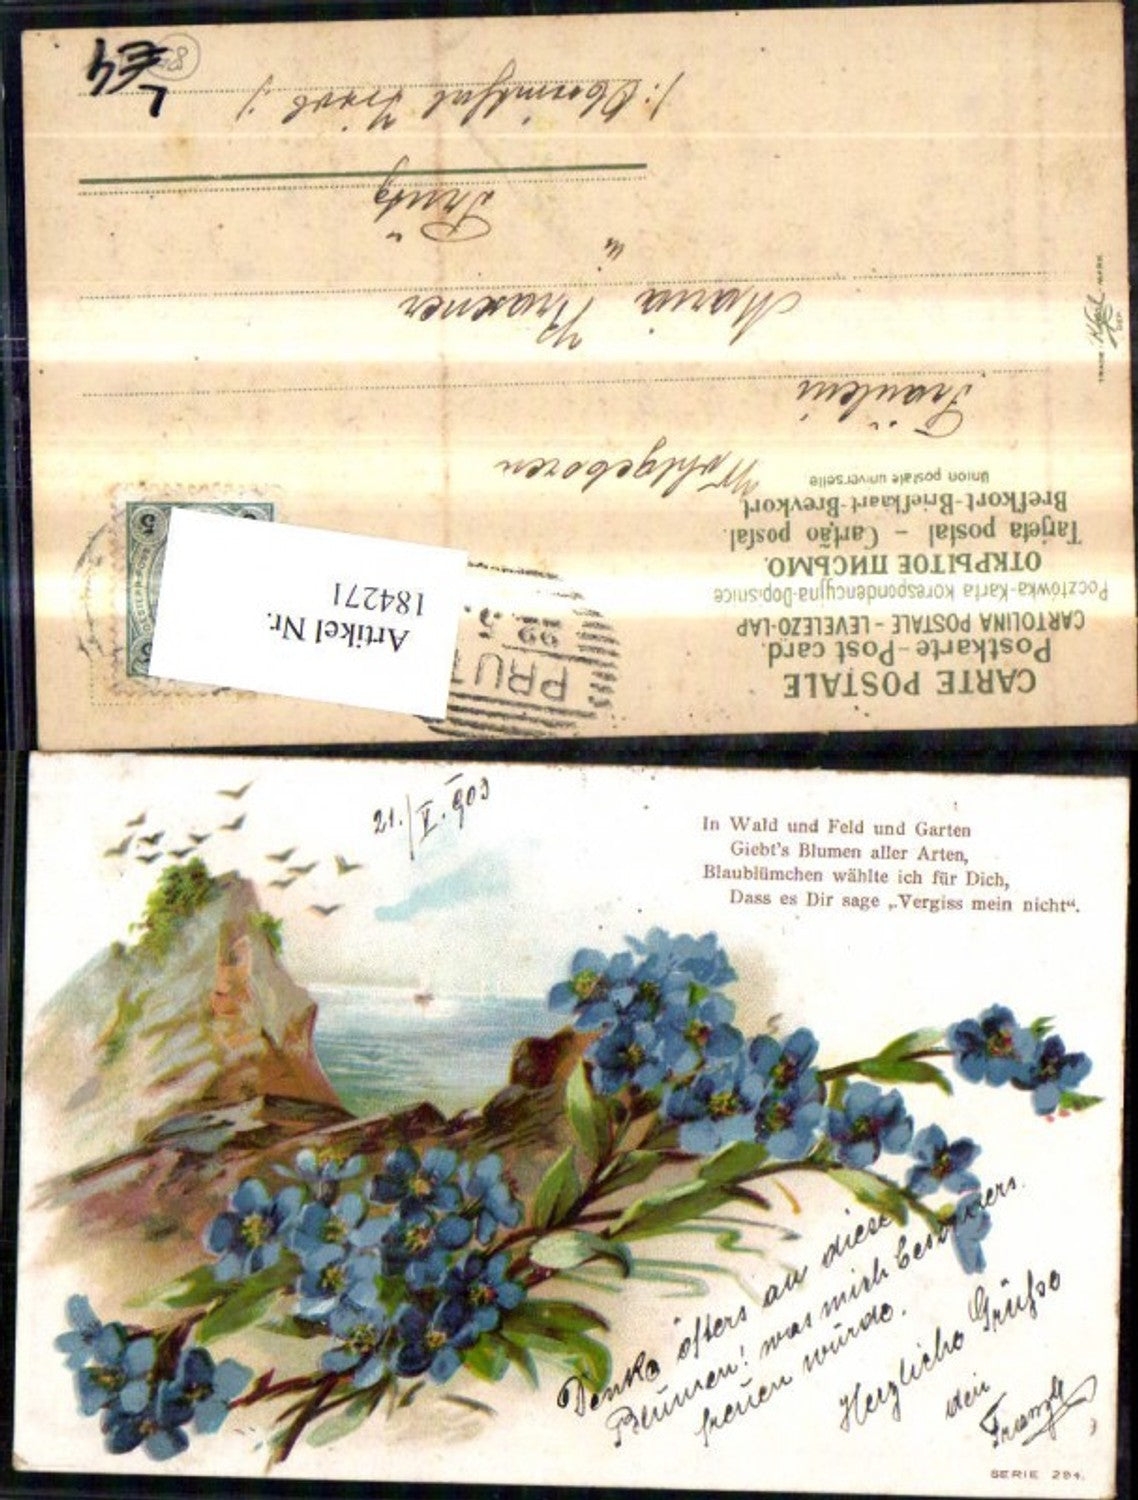 CARTE POSTALE
Postkarte-Post card.
CARTOLINA POSTALE - LEVELEZO-LAP
Pocztówka-Karta korespondencyjna-Dopisnice
ОТКРЫТОЕ ПИСЬМО.
Tarjeta postal - Cartão postal.
Brefkort-Briefkaart-Brevkort
Union postale universelle
PRUT
Artikel Nr.
184271
5
Wohlgeboren
Fräulein
Maria
in
Prutz
(: Oberinnthal Tirol :)
€4
21./V. 903
In Wald und Feld und Garten
Giebt's Blumen aller Arten,
Blaublümchen wählte ich für Dich,
Dass es Dir sage „Vergiss mein nicht“.
Denke öfters an diese
Blumen! was mich besonders
freuen würde.
Herzliche Grüße
dein
Franzl
SERIE 294.